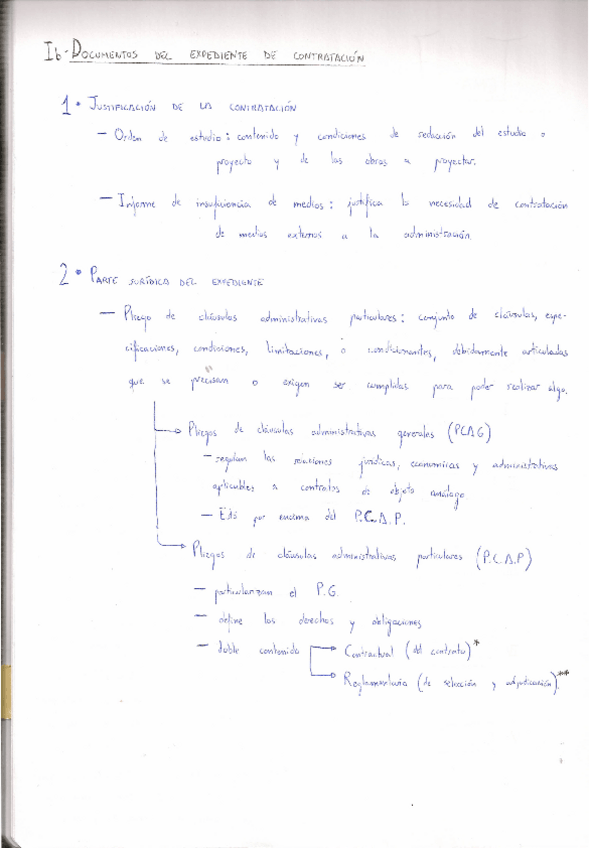 Ib- DOCUMENTOS DEL EXPEDIENTE DE CONTRATACIÓN
1 • JUSTIFICACIÓN DE LA CONTRATACIÓN
— Orden de estudio: contenido y condiciones de redacción del estudio o
proyecto y de las obras a proyectar.
— Informe de insuficiencia de medios: justifica la necesidad de contratación
de medios externos a la administración.
2 • PARTE JURÍDICA DEL EXPEDIENTE
— Pliego de cláusulas administrativas particulares: conjunto de cláusulas, espe-
cificaciones, condiciones, limitaciones, o condicionantes, debidamente articuladas
que se precisan o exigen ser cumplidas para poder realizar algo.
Pliegos de cláusulas administrativas generales (PCAG)
— regulan las relaciones jurídicas, económicas y administrativas
aplicables a contratos de objeto análogo.
— Está por encima del P.C.A.P.
Pliegos de cláusulas administrativas particulares (P.C.A.P)
— particularizan el P.G.
— define los derechos y obligaciones
— doble contenido Contractual (del contrato)*
Reglamentario (de selección y adjudicación)**